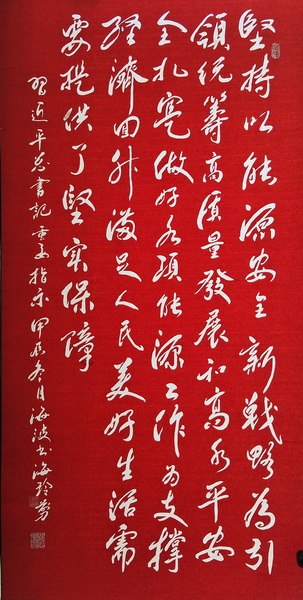 堅持以能源安全新戰略为引
領統籌高質量發展和高水平安
全扎寔做好各項能源工作为支撑
經濟回升滿足人民美好生活需
要提供了堅实保障
習近平总書記重要指示 甲辰冬月海波书海玲剪